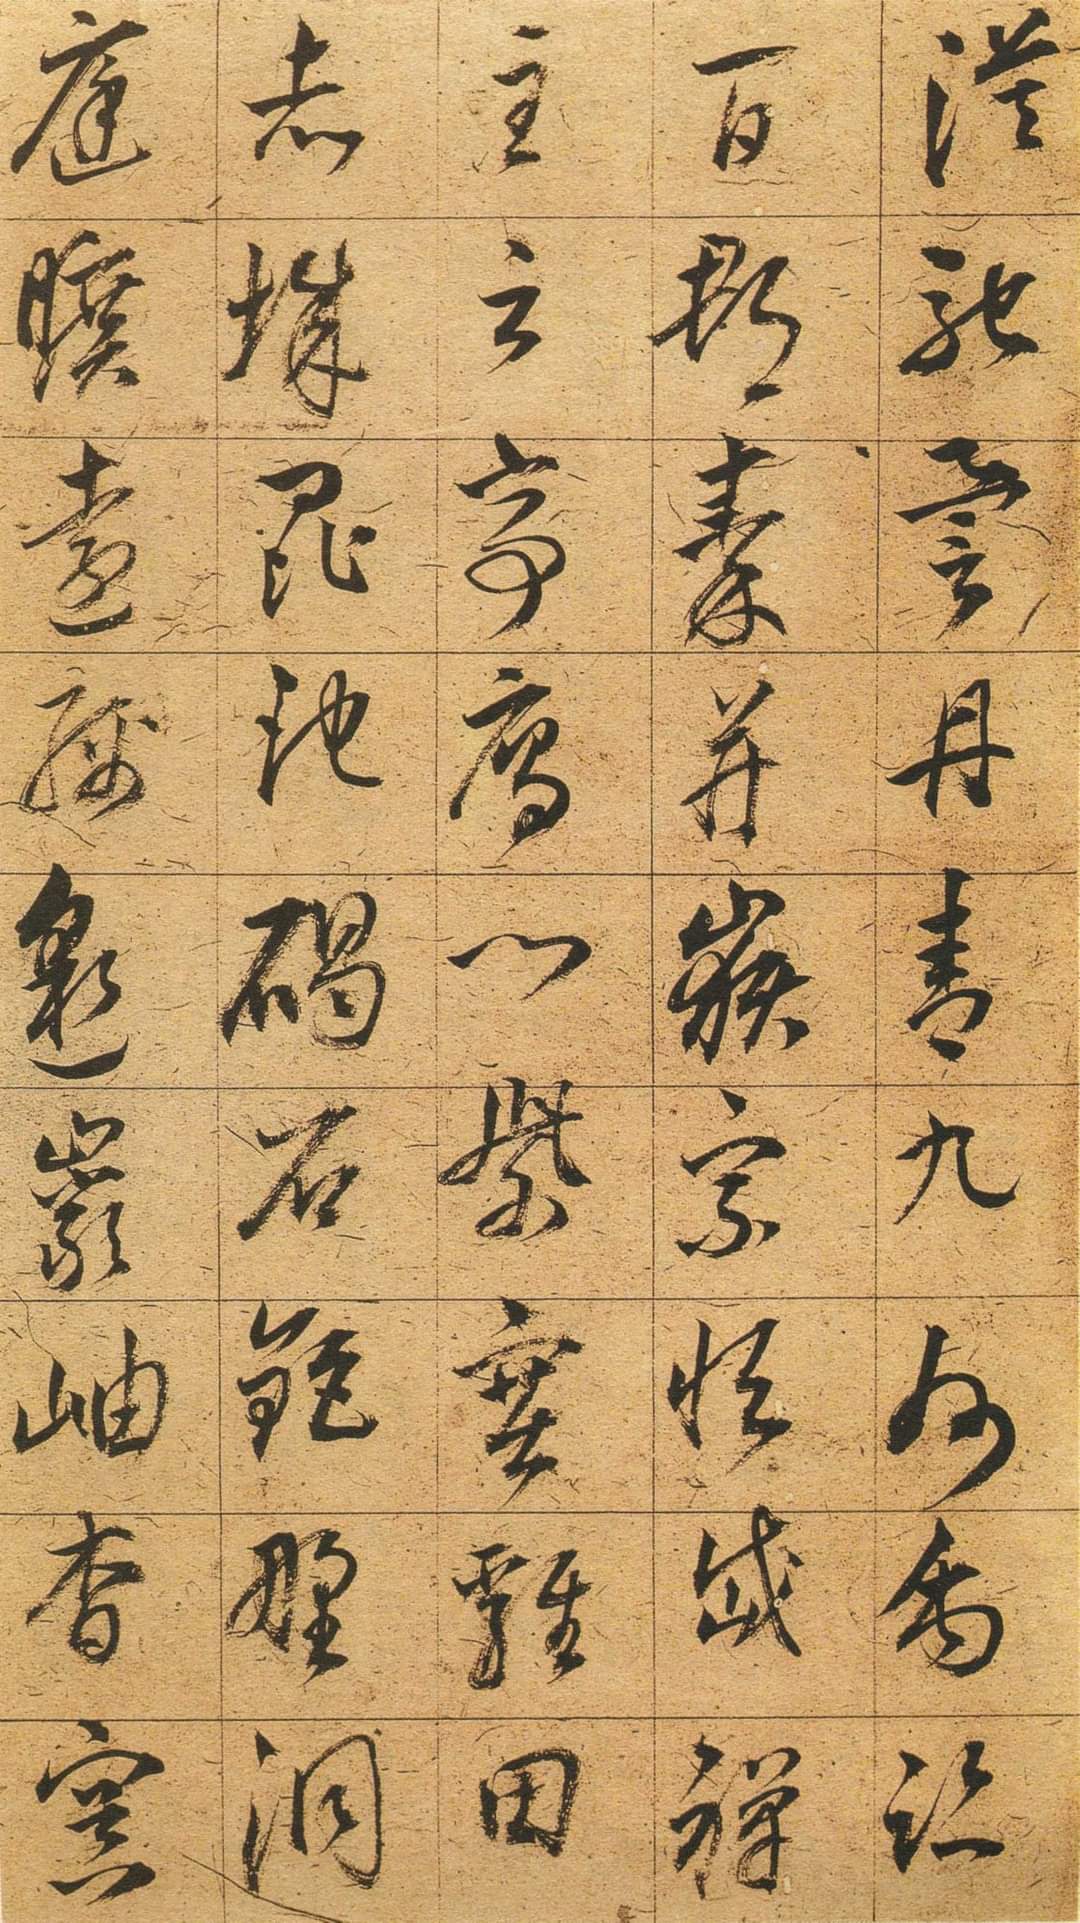 漠馳譽丹青九州禹跡
百郡秦并嶽宗恒岱禪
主云亭鴈門紫塞雞田
赤城昆池碣石鉅野洞
庭曠遠緜邈巖岫杳冥